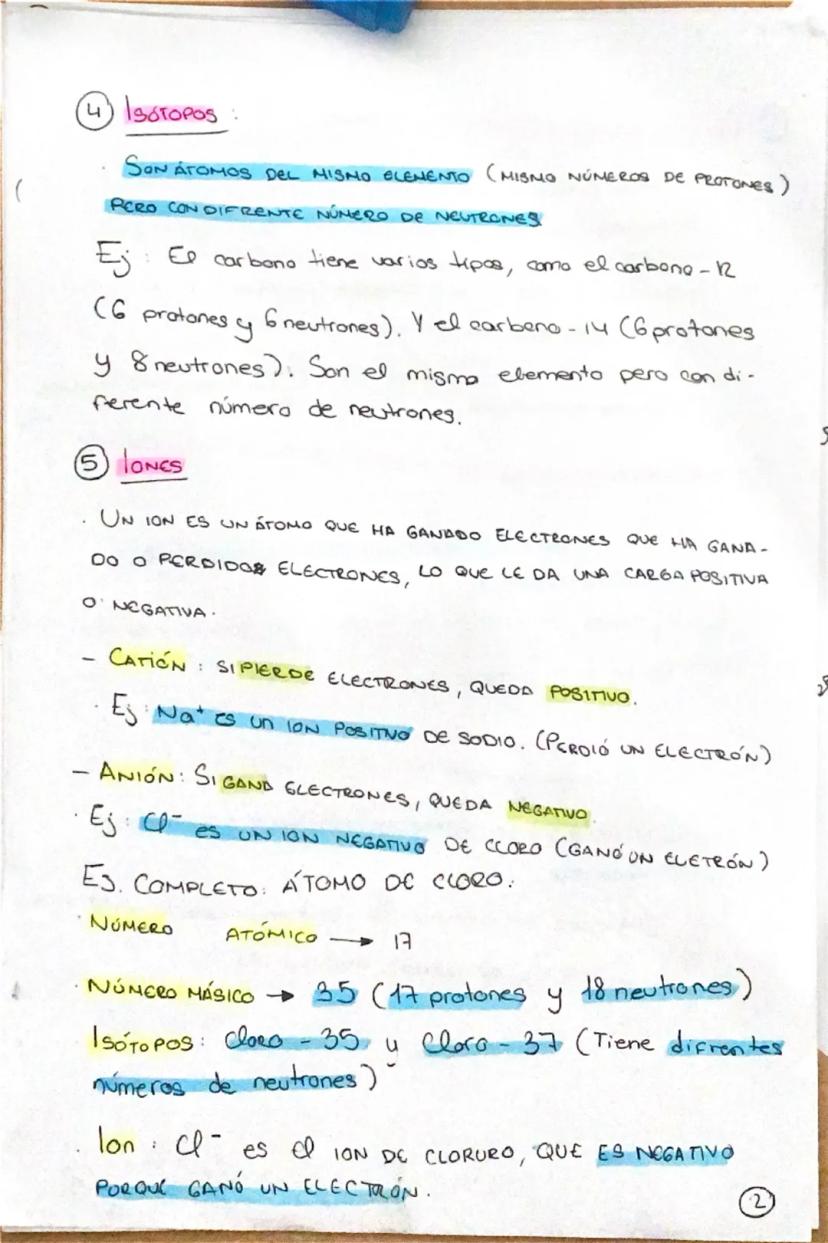 4 ISÓTOPOS :
· SON ÁTOMOS DEL MISMO ELEMENTO (MISMO NÚMEROS DE PROTONES)
PERO CON DIFRENTE NÚMERO DE NEUTRONES
Ej : El carbono tiene varios tipos, como el carbono - 12
(6 protones y 6 neutrones). Y el carbono - 14 (6 protones
y 8 neutrones). Son el mismo elemento pero con di-
ferente número de neutrones.
5 IONES
· UN ION ES UN ÁTOMO QUE HA GANADO ELECTRONES QUE HA GANA-
DO O PERDIDOS ELECTRONES, LO QUE LE DA UNA CARGA POSITIVA
O NEGATIVA.
- CATIÓN : SI PIERDE ELECTRONES, QUEDA POSITIVO.
· Ej : Na⁺ ES UN ION POSITIVO DE SODIO. (PERDIÓ UN ELECTRÓN)
- ANIÓN : SI GANA ELECTRONES, QUEDA NEGATIVO.
· Ej : Cl⁻ es UN ION NEGATIVO DE CLORO (GANÓ UN ELETRÓN)
EJ. COMPLETO: ÁTOMO DE CLORO.
· NÚMERO ATÓMICO → 17
· NÚMERO MÁSICO → 35 (17 protones y 18 neutrones)
ISÓTOPOS : Cloro - 35 y Cloro - 37 (Tiene difrentes
números de neutrones)
· Ion : Cl⁻ es el ION DE CLORURO, QUE ES NEGATIVO
PORQUE GANÓ UN ELECTRÓN.
2